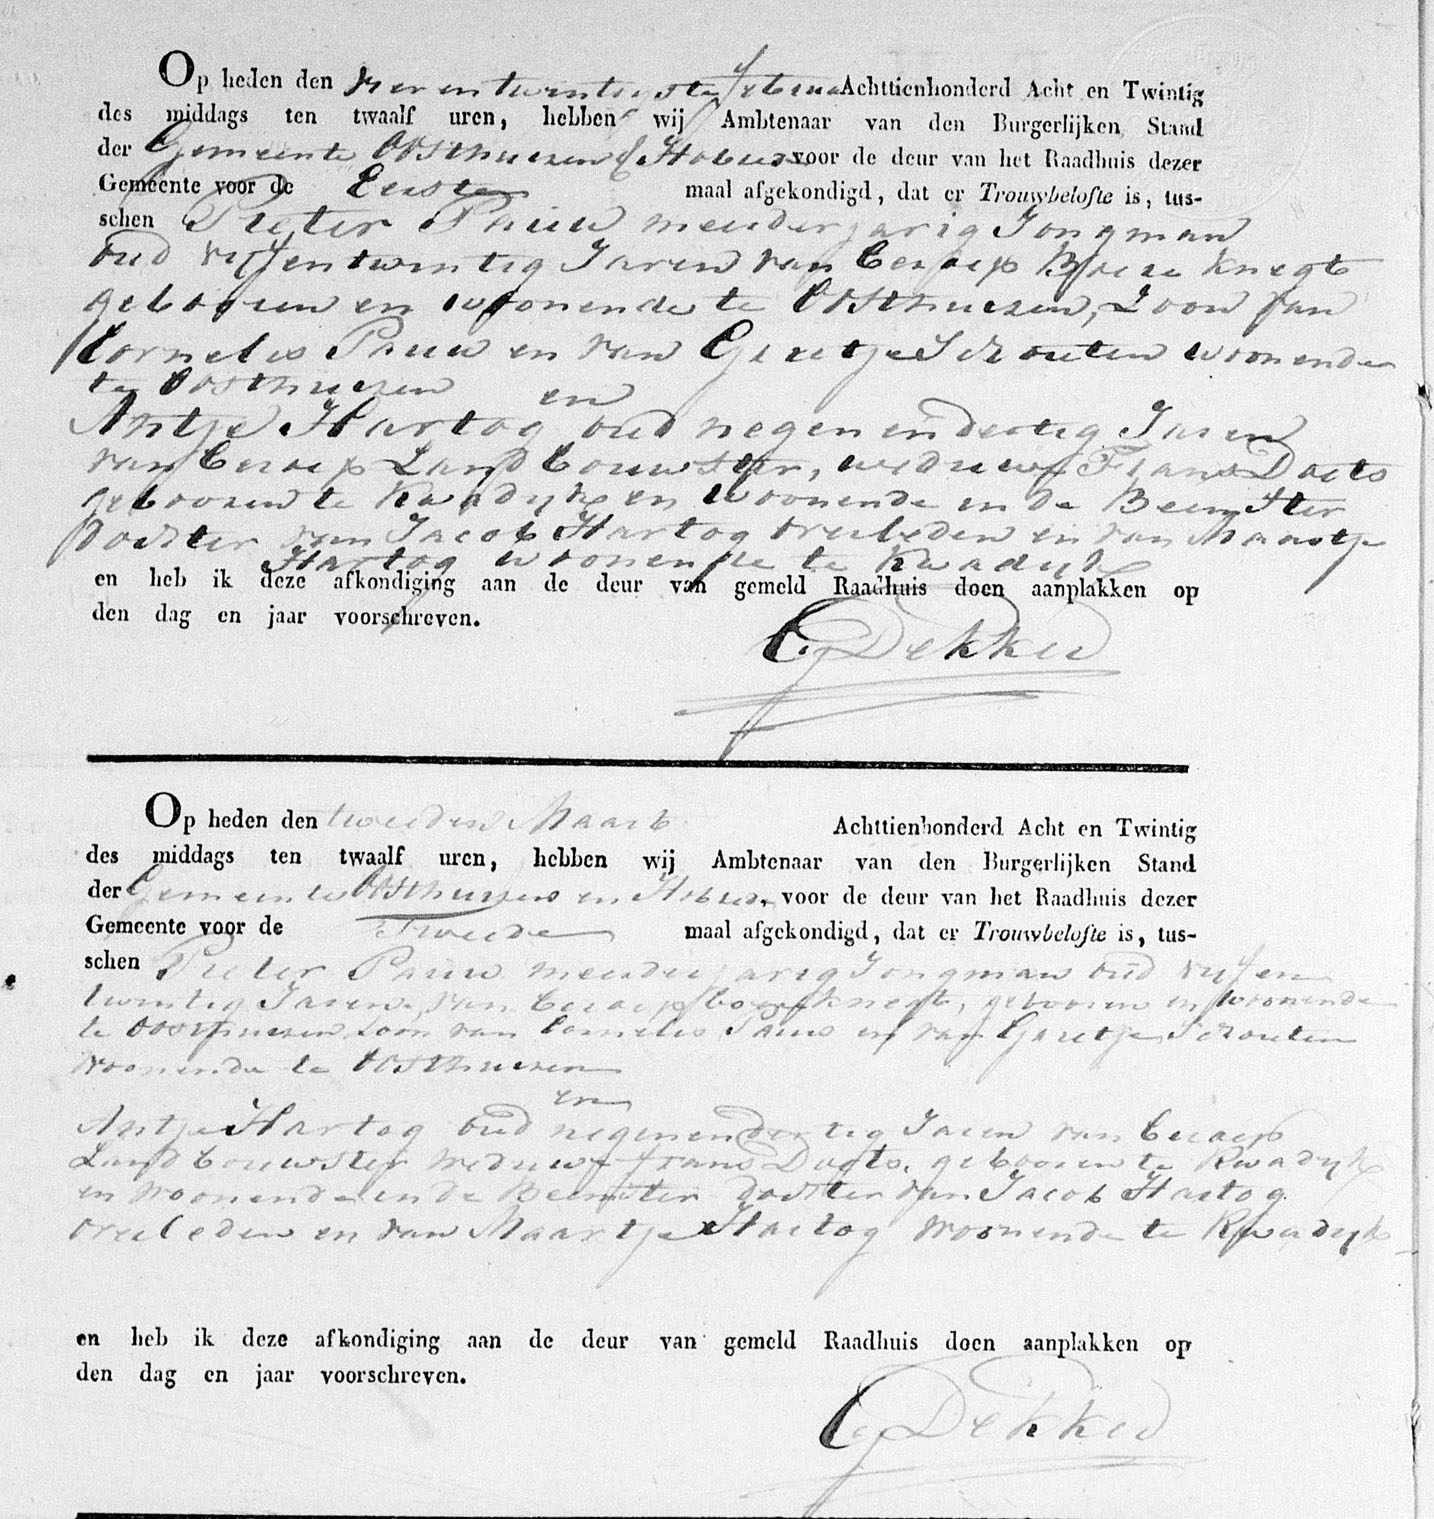 Op heden den vier en twintigste Februa Achttienhonderd Acht en Twintig
des middags ten twaalf uren, hebben wij Ambtenaar van den Burgerlijken Stand
der Gemeente Oosthuizen & Hobree voor de deur van het Raadhuis dezer
Gemeente voor de Eerste maal afgekondigd, dat er Trouwbelofte is, tus-
schen Pieter Pauw meerderjarig Jongman
oud vijfentwintig Jaren van beroep Boere knegt
gebooren en woonende te Oosthuizen, Zoon van
Cornelis Pauw en van Geertje Schouten woonende
te Oosthuizen en
Antje Hartog oud negen en dertig Jaren
van beroep Landbouwster, weduwe Frans Doets
gebooren te Kwadijk en woonende in de Beemster
Dochter van Jacob Hartog overleden en van Maartje
Hartog woonende te Kwadijk
en heb ik deze afkondiging aan de deur van gemeld Raadhuis doen aanplakken op
den dag en jaar voorschreven.
C Dekker
Op heden den tweeden Maart Achttienhonderd Acht en Twintig
des middags ten twaalf uren, hebben wij Ambtenaar van den Burgerlijken Stand
der Gemeente Oosthuizen en Hobree, voor de deur van het Raadhuis dezer
Gemeente voor de Tweede maal afgekondigd, dat er Trouwbelofte is, tus-
schen Pieter Pauw meerderjarig Jongman oud vijfen
twintig Jaren, van beroep boereknegt, gebooren en woonende
te Oosthuizen Zoon van Cornelis Pauw en van Geertje Schouten
woonende te Oosthuizen
en
Antje Hartog oud negenendertig Jaren van beroep
Landbouwster weduwe frans Doets, gebooren te Kwadijk
en woonende in de Beemster dochter van Jacob Hartog
overleden en van Maartje Hartog woonende te Kwadijk
en heb ik deze afkondiging aan de deur van gemeld Raadhuis doen aanplakken op
den dag en jaar voorschreven.
C Dekker